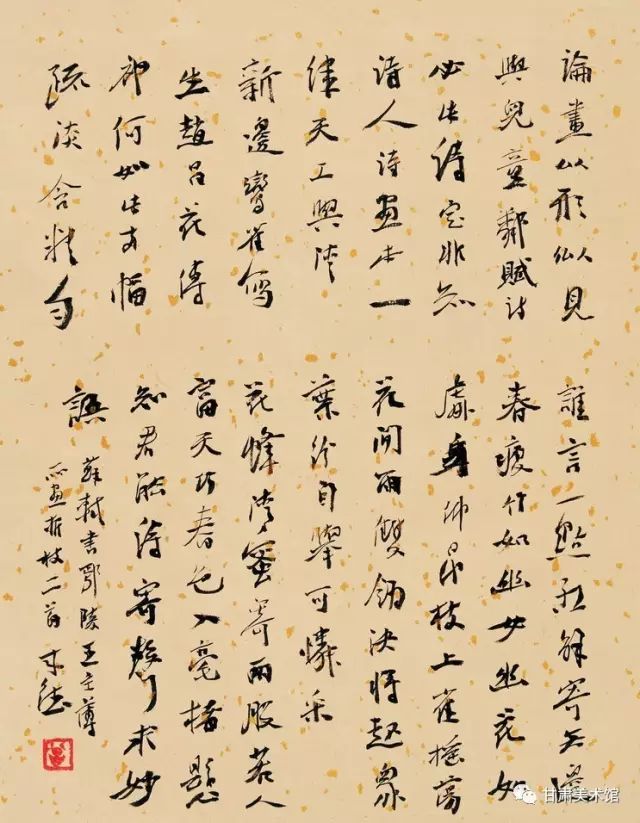 論畫以形似見
與兒童鄰賦詩
必此詩定非知
詩人詩画本一
律天工與清
新邊鸞雀寫
生趙昌花傳
神何如此兩幅
疏淡含精勻
誰言一點紅解寄無邊
春瘦竹如幽女幽花如
處女低昂枝上雀搖蕩
花間雨雙翎決將起眾
葉紛自舉可憐采
花蜂清蜜寄兩股若人
富天巧春色入毫楮懸
知君能詩寄聲求妙
語
蘇軾書鄢陵王主薄
所画折枝二首
甘肃美术馆